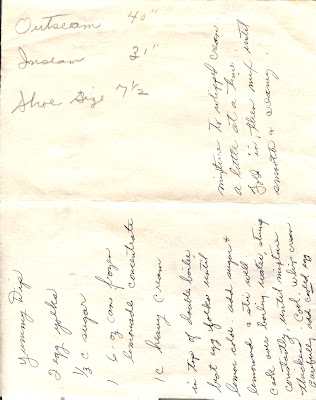 Outseam 40"
Inseam 31"
Shoe Size 7 1/2
Yummy Dip
2 egg yolks
1/3 c sugar
1 6-oz can frozen
lemonade concentrate
1 c heavy cream
in top of double boiler
beat egg yolks until
lemon color add sugar &
lemonade & stir well
Cook over boiling water, stirring
constantly, until mixture
thickens. Cool. whip cream
Carefully add cold egg
mixture to whipped cream
a little at a time.
Fold in, then mix until
smooth & creamy.